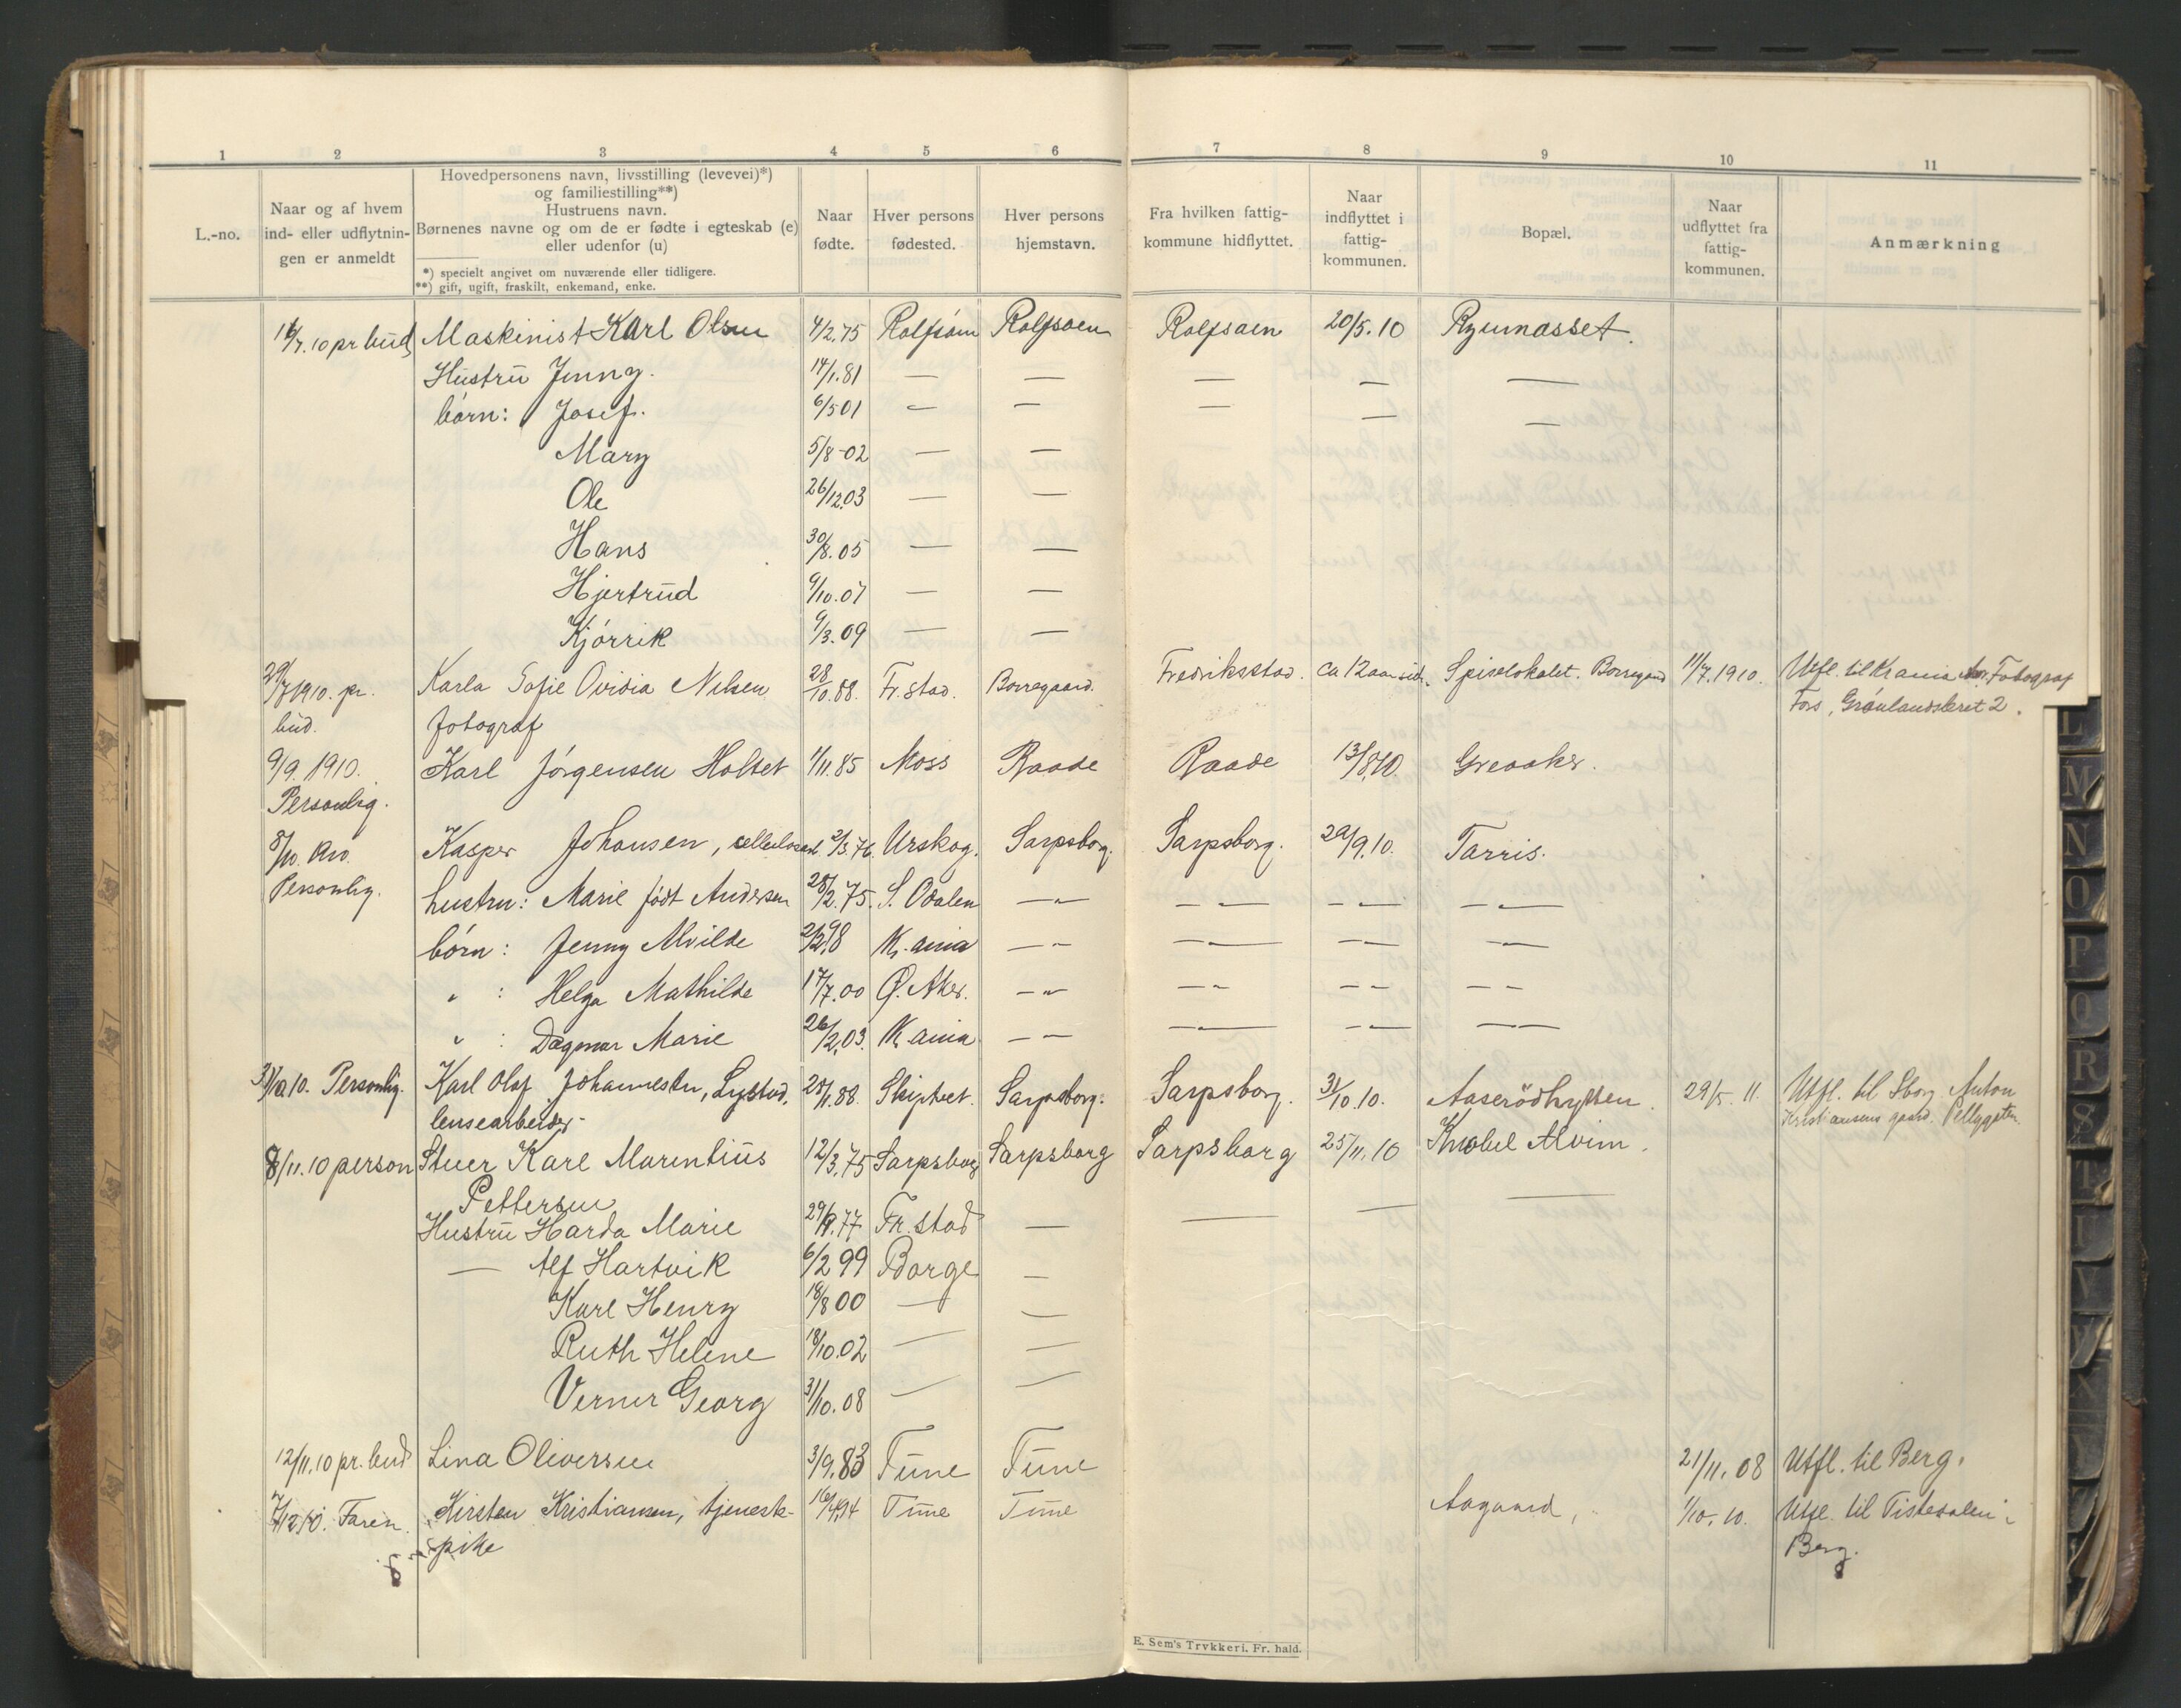 1 2 3 4 5 6 7 8 9 10 11
L.-no.
Naar og af hvem
ind- eller udflytnin-
gen er anmeldt
Hovedpersonens navn, livsstilling (levevei)*)
og familiestilling**)
Hustruens navn.
Børnenes navne og om de er fødte i egteskab (e)
eller udenfor (u)
*) specielt angivet om nuværende eller tidligere.
**) gift, ugift, fraskilt, enkemand, enke.
Naar
fødte.
Hver persons
fødested.
Hver persons
hjemstavn.
Fra hvilken fattig-
kommune hidflyttet.
Naar
indflyttet i
fattig-
kommunen.
Bopæl.
Naar
udflyttet fra
fattig-
kommunen.
Anmærkning
/7.10 pr bud Maskinist Karl Olsen 4/2.75 Rolfsøen Rolfsøen Rolfsøen 20/5.10 Ryumasset.
Hustru Jenny. 14/1.81 — — — — —
børn: Josef. 6/5 01 — — — — —
Mary 5/8-02 — —
Ole 26/12.03 — —
Hans 30/8.05 — —
Hjertrud 9/10.07 — —
Kjørrik 9/3.09 — —
29/7 1910. pr. Karla Sofie Ovidia Nilsen 28/10.88. Fr.stad. Borregaard. Fredriksstad. ca 12 aar sid. Spiselokalet. Borregaard 11/7.1910. Utfl. til Krania Fotograf
bud. fotograf Fors, Grønlandsleret 2.
9/9.1910. Karl Jørgensen Holtet 1/11.85 Moss Raade Raade 13/8.10. Greaaker.
Personlig.
8/10. 1910. Kasper Johansen, cellulosearb. 2/3.76. Urskog. Sarpsborg. Sarpsborg. 29/9.10. Tarris.
Personlig. hustru: Marie født Andersen 28/2.75. S. Odalen —"— — — — —
børn: Jenny Alvilde 2/2.98 Kr.ania — - — — —
" : Helga Mathilde 17/7.00 Ø. Aker. —"— — - — - — -
" : Dagmar Marie 26/2.03. Kr.ania — - — — —
31/10 10. Personlig. Karl Olaf Johannessen, Lystad, 28/11.88. Skiptvet. Sarpsborg. Sarpsborg. 31/10.10. Aaserödhytten. 29/5. 11. Utfl. til Sborg Anton
lensearbeider Kristiansens gaard. Pellygaten
8/11.10 person Stuer Karl Marentius 12/3.75 Sarpsborg Sarpsborg Sarpsborg 25/11.10 Knobel Alvim.
Pettersen
Hustru Harda Marie 29/9.77 Fr.stad — — — —
— Alf Hartvik 6/2 99 Borge —
Karl Henry 18/8 00 — —
Ruth Helene 18/10.02 — —
Verner Georg 31/10.08 — —
12/11.10 pr. bud Lina Oliversen 3/9.83 Tune Tune 21/11.08 Utfl. til Berg.
7/12 10. Faren. Kirsten Kristiansen, tjeneste- 16/4.94 Tune Tune Aagaard, 1/10. 10. Utfl. til Tistedalen i
pike Berg.
E. Sem's Trykkeri. Fr. hald.
L
M
N
O
P
Q
R
S
T
U
V
W
X
Y